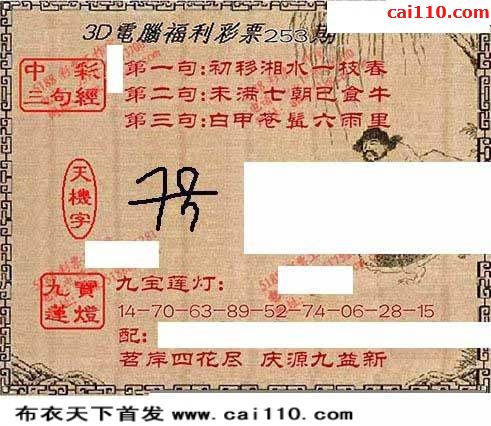 cai110.com
3D電腦福利彩票253期
中彩
三句經
第一句:初移湘水一枝春
第二句:未满七朝已食牛
第三句:白甲苍髭六雨里
天機字
九寶
蓮燈
九宝莲灯:
14-70-63-89-52-74-06-28-15
配:
茗岸四花尽 庆源九益新
布衣天下首发 www.cai110.com